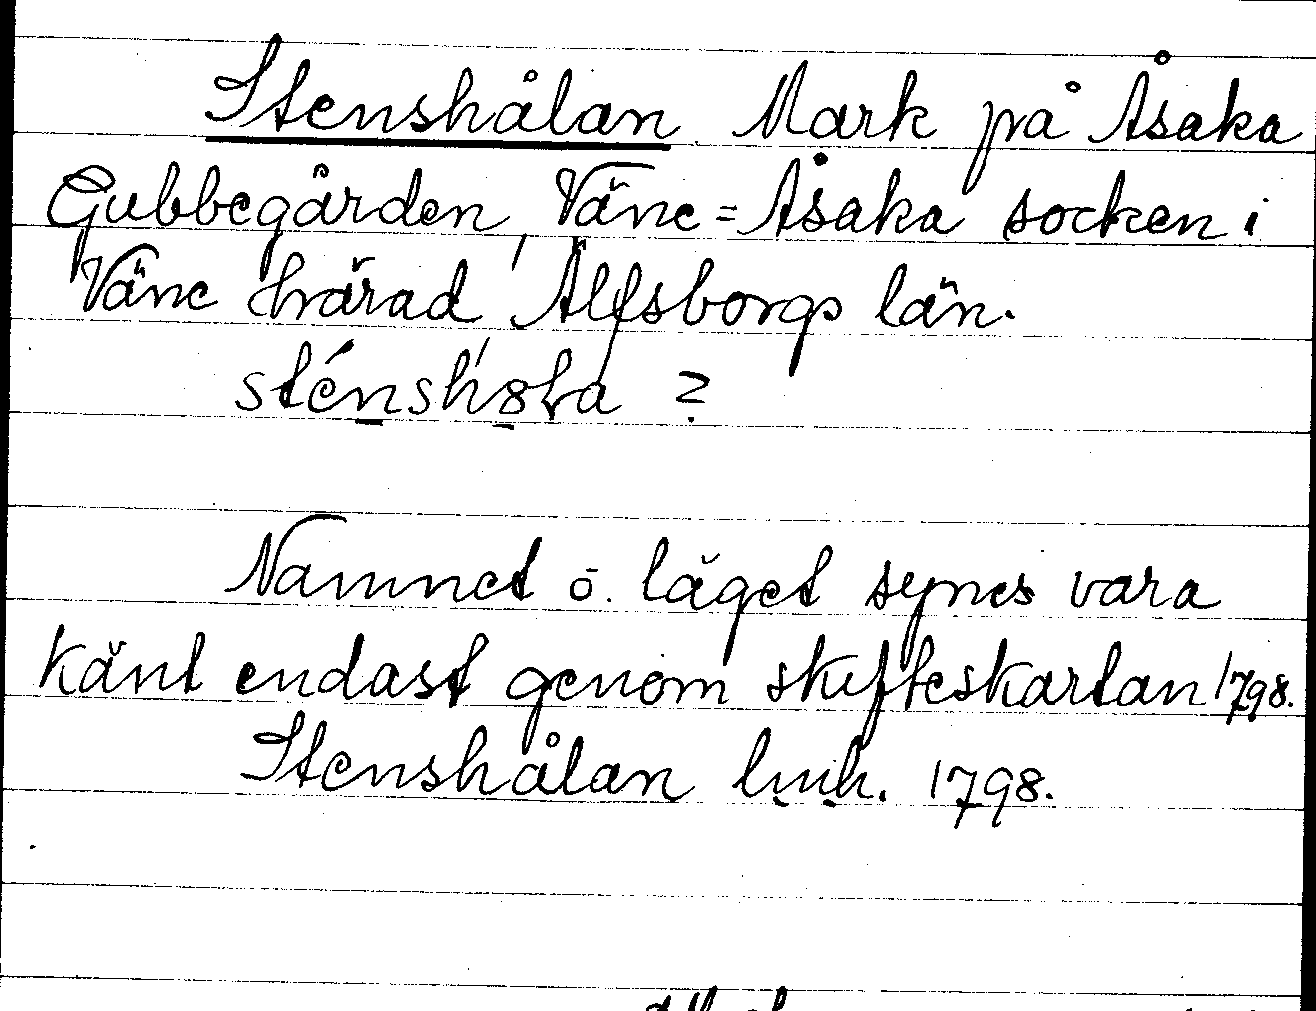 Stenshålan Mark på Åsaka
Gubbegården, Väne=Åsaka socken i
Väne härad, Älfsborgs län.
Namnet o. läget synes vara
känt endast genom skifteskartan 1798.
Stenshålan lmh. 1798.